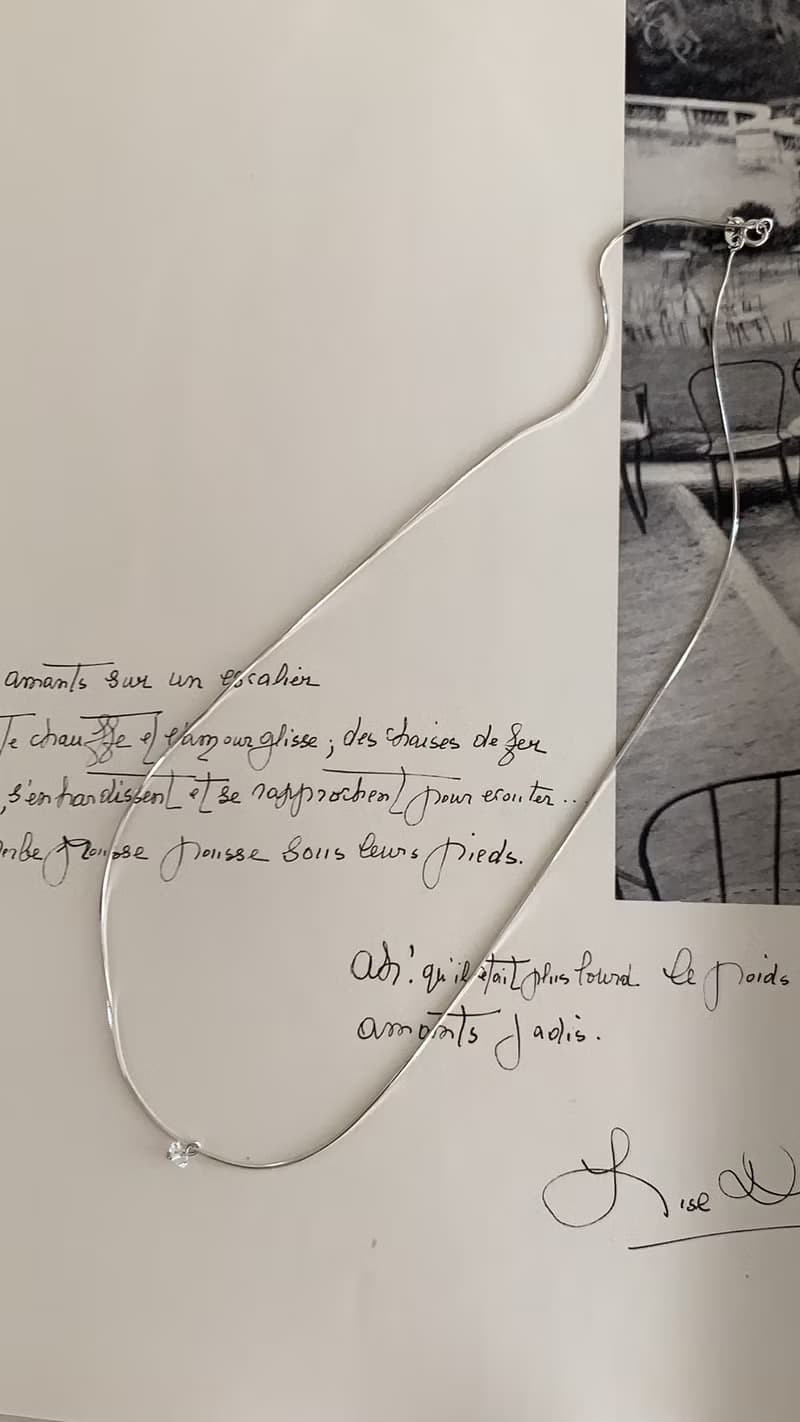 amants sur un escalier
Te chauffe et l'amour glisse ; des chaises de fer
s'enhardissent et se rapprochent pour ecouter...
pousse pousse sous leurs pieds.
Ah! qu'il était plus lourd le poids
amants jadis.
Lise D